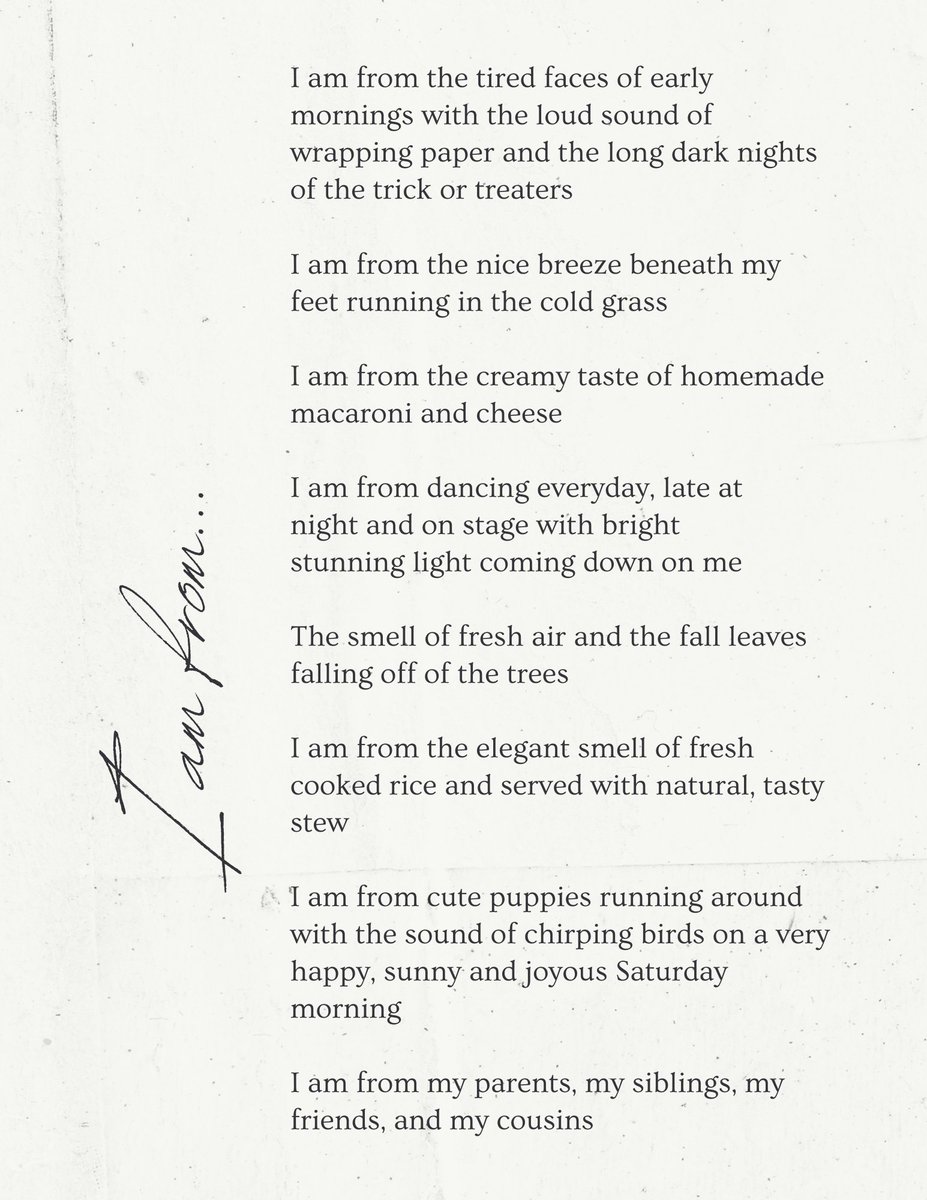 I am from...
I am from the tired faces of early
mornings with the loud sound of
wrapping paper and the long dark nights
of the trick or treaters
I am from the nice breeze beneath my
feet running in the cold grass
I am from the creamy taste of homemade
macaroni and cheese
I am from dancing everyday, late at
night and on stage with bright
stunning light coming down on me
The smell of fresh air and the fall leaves
falling off of the trees
I am from the elegant smell of fresh
cooked rice and served with natural, tasty
stew
I am from cute puppies running around
with the sound of chirping birds on a very
happy, sunny and joyous Saturday
morning
I am from my parents, my siblings, my
friends, and my cousins